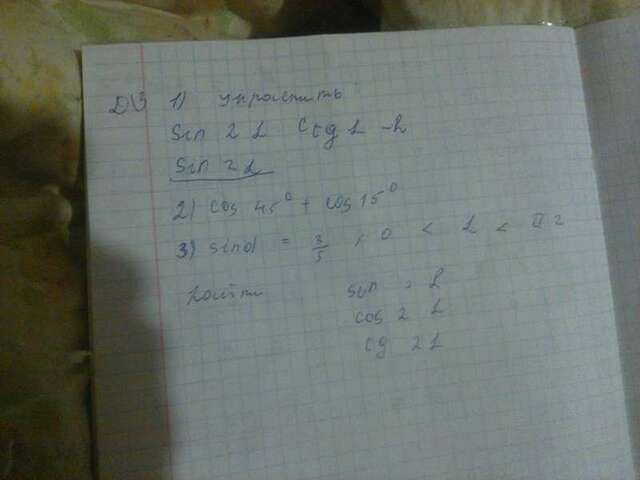 ДЗ 1) упростить
Sin 2 L Ctg L -
Sin 2 L
2) cos 45° + cos 15°
3) sin d = 3/5 , 0 < L < π 2
Найти sin 2 L
cos 2 L
tg 2 L